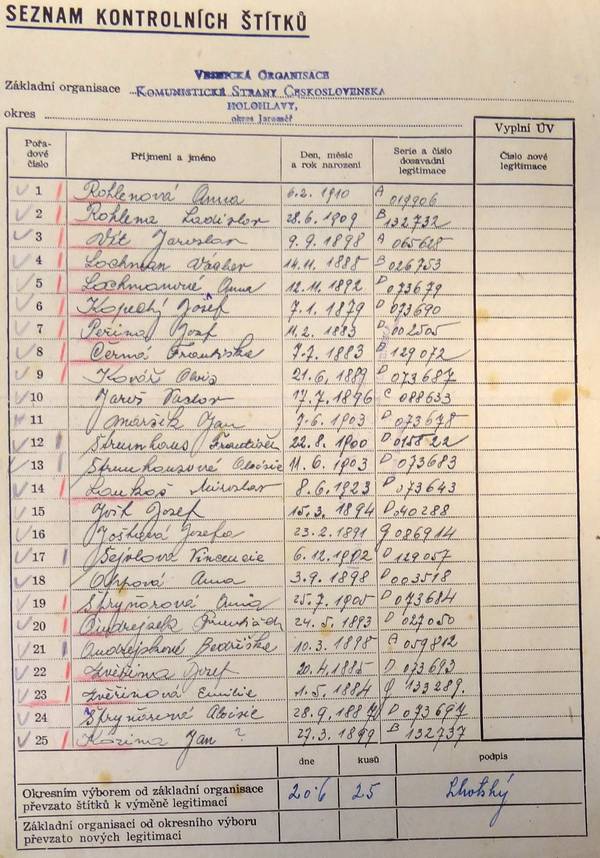 SEZNAM KONTROLNÍCH ŠTÍTKŮ
VESNICKÁ ORGANISACE
Základní organisace KOMUNISTICKÉ STRANY ČESKOSLOVENSKA
HOLOHLAVY,
okres okres Jaroměř
Vyplní ÚV
Pořadové číslo Příjmení a jméno Den, měsíc a rok narození Serie a číslo dosavadní legitimace Číslo nové legitimace
1 Rohlenová Anna 6.2. 1910 A 019906
2 Rohlena Ladislav 28.6. 1909 B 132732
3 Vít Jaroslav 9.9. 1898 A 065628
4 Lochman Václav 14.11. 1888 B 026753
5 Lochmanová Anna 12.11. 1892 D 073679
6 Josef 7.1. 1879 D 073690
7 Peřina Josef 11.2. 1883 D 002505
8 Černá Františka 7.7. 1883 D 129072
9 Kovář Alois 21.6. 1889 D 073687
10 Jaruš Václav 17.7. 1896 C 088633
11 Jan 7.6. 1903 D 073678
12 František 22.8. 1900 D
13 Aloisie 11.6. 1903 D 073683
14 Miroslav 8.6. 1923 D 073643
15 Josef 15.3. 1894 D 040288
16 Josefa 23.2. 1891 086914
17 Vincencie 6.12. 1902 D 129057
18 Anna 3.9. 1898 D 003518
19 Špryňarová Anna 25.7. 1905 D 073684
20 František 24.5. 1893 D 027050
21 Bedřiška 10.3. 1898 A 059812
22 Zvěřina Josef 20.4. 1885 D 073693
23 Zvěřinová Emilie 1.5. 1884 133289.
24 Špryňarová Aloisie 28.9. 1887 D 073697
25 Kázima Jan ? 27.3. 1899 B 132737
dne kusů podpis
Okresním výborem od základní organisace
převzato štítků k výměně legitimací 20.6 25 Lhotský
Základní organisací od okresního výboru
převzato nových legitimací